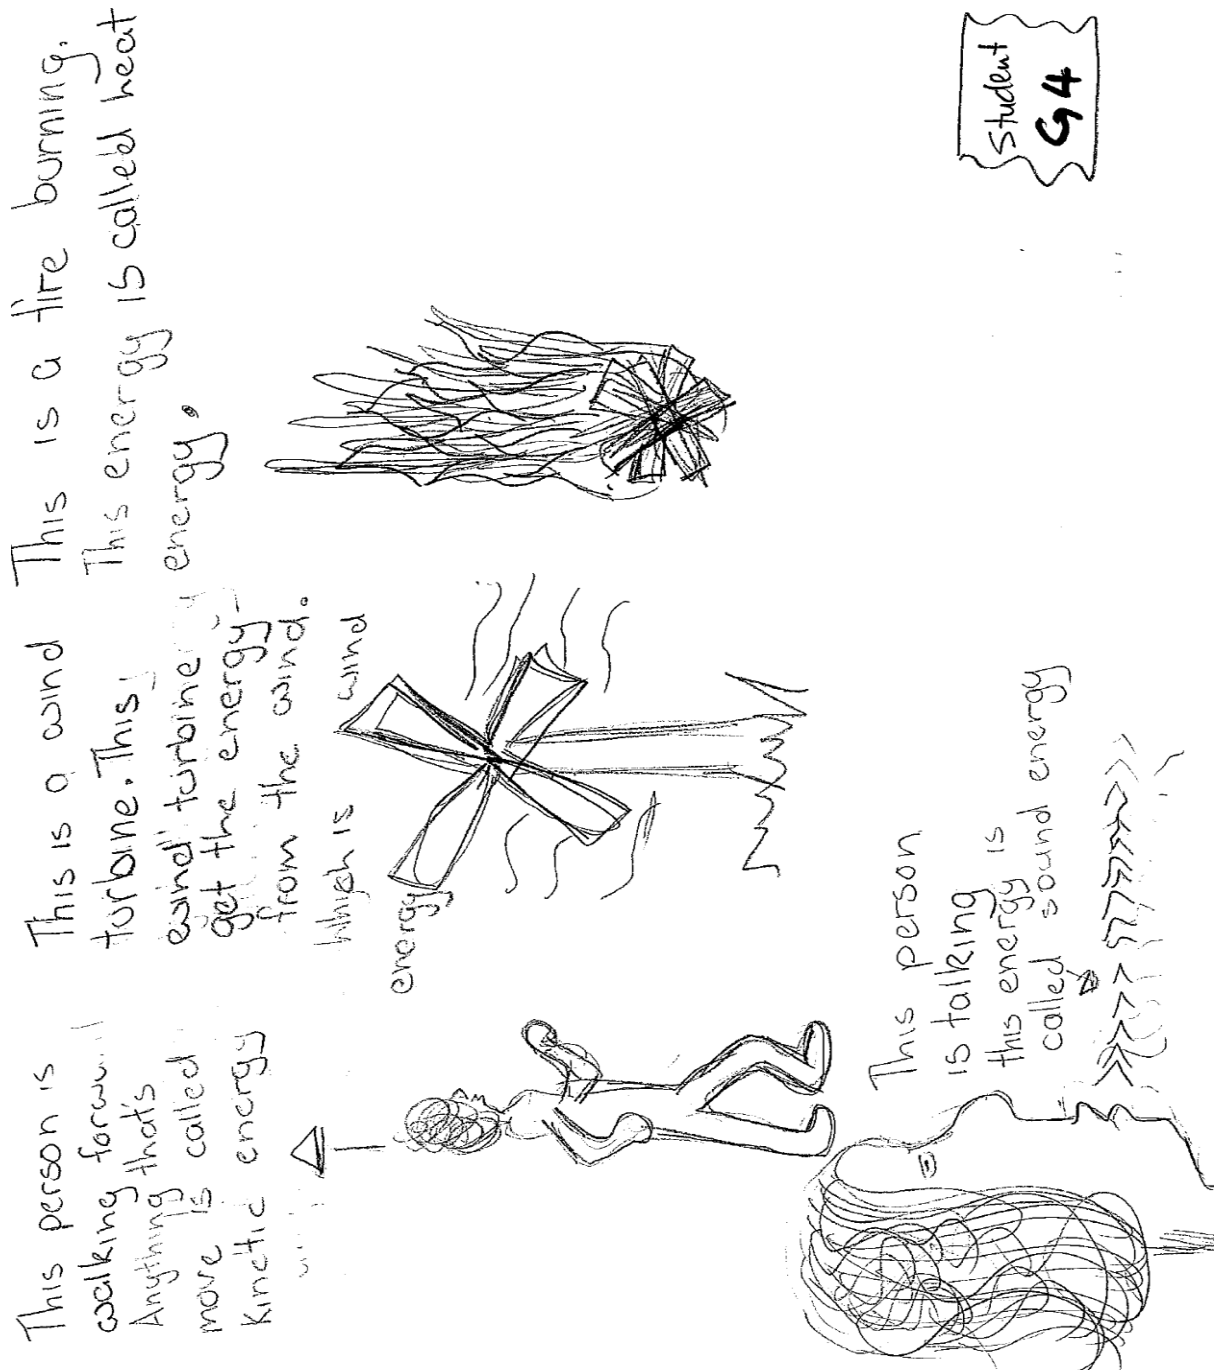 This person is
walking forward
Anything that's
move is called
Kinetic energy
This is a wind
turbine. This
wind turbine
get the energy
from the wind.
Which is wind
energy
This is a fire burning.
This energy is called heat
energy.
This person
is talking
this energy is
called sound energy
Student
G4